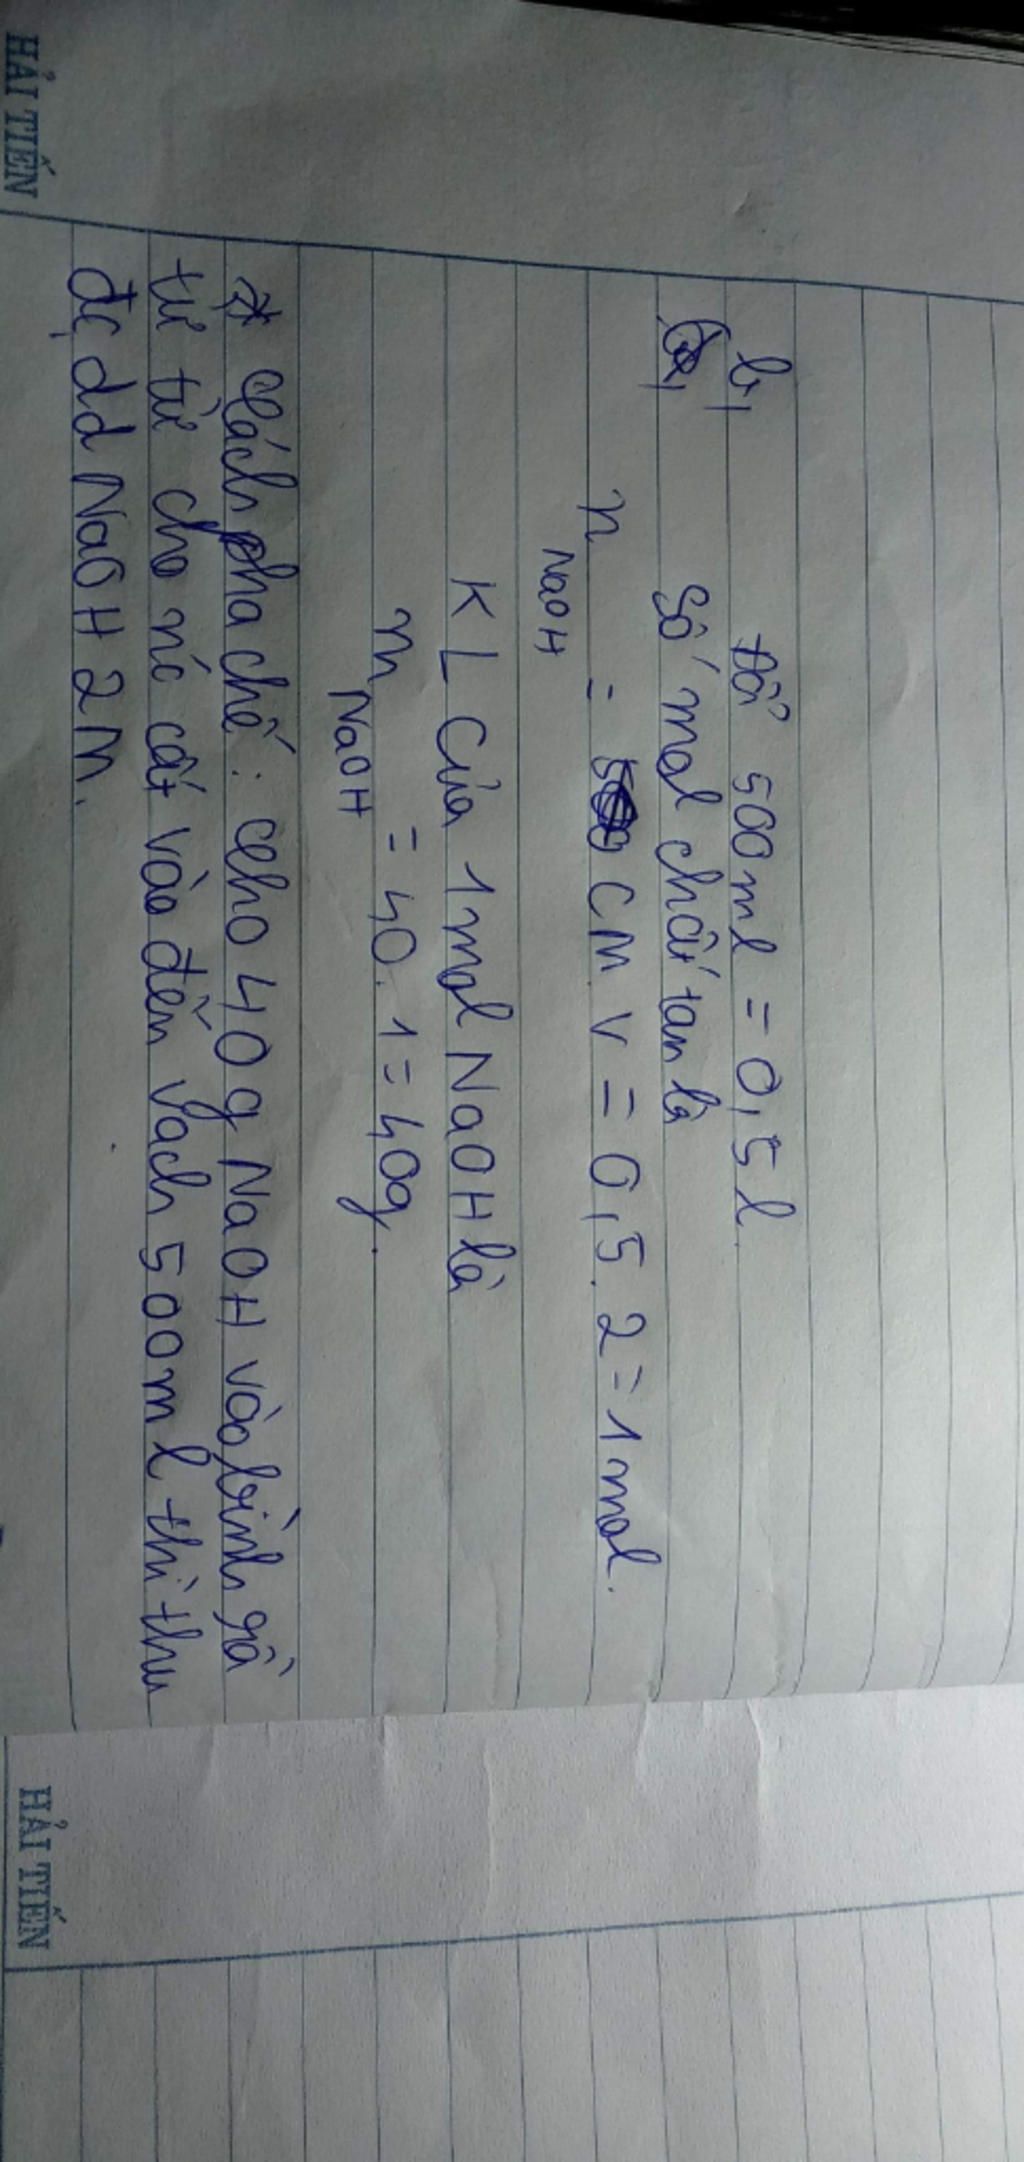 HẢI TIẾN
b,
Đổi 500ml = 0,5l.
Số mol chất tan là
n NaOH = CM.V = 0,5.2 = 1mol.
KL của 1mol NaOH là
m NaOH = 40.1 = 40g.
* Cách pha chế: cho 40g NaOH vào bình rồi
từ từ cho nc cất vào đến vạch 500ml thì thu
đc dd NaOH 2M.
HẢI TIẾN